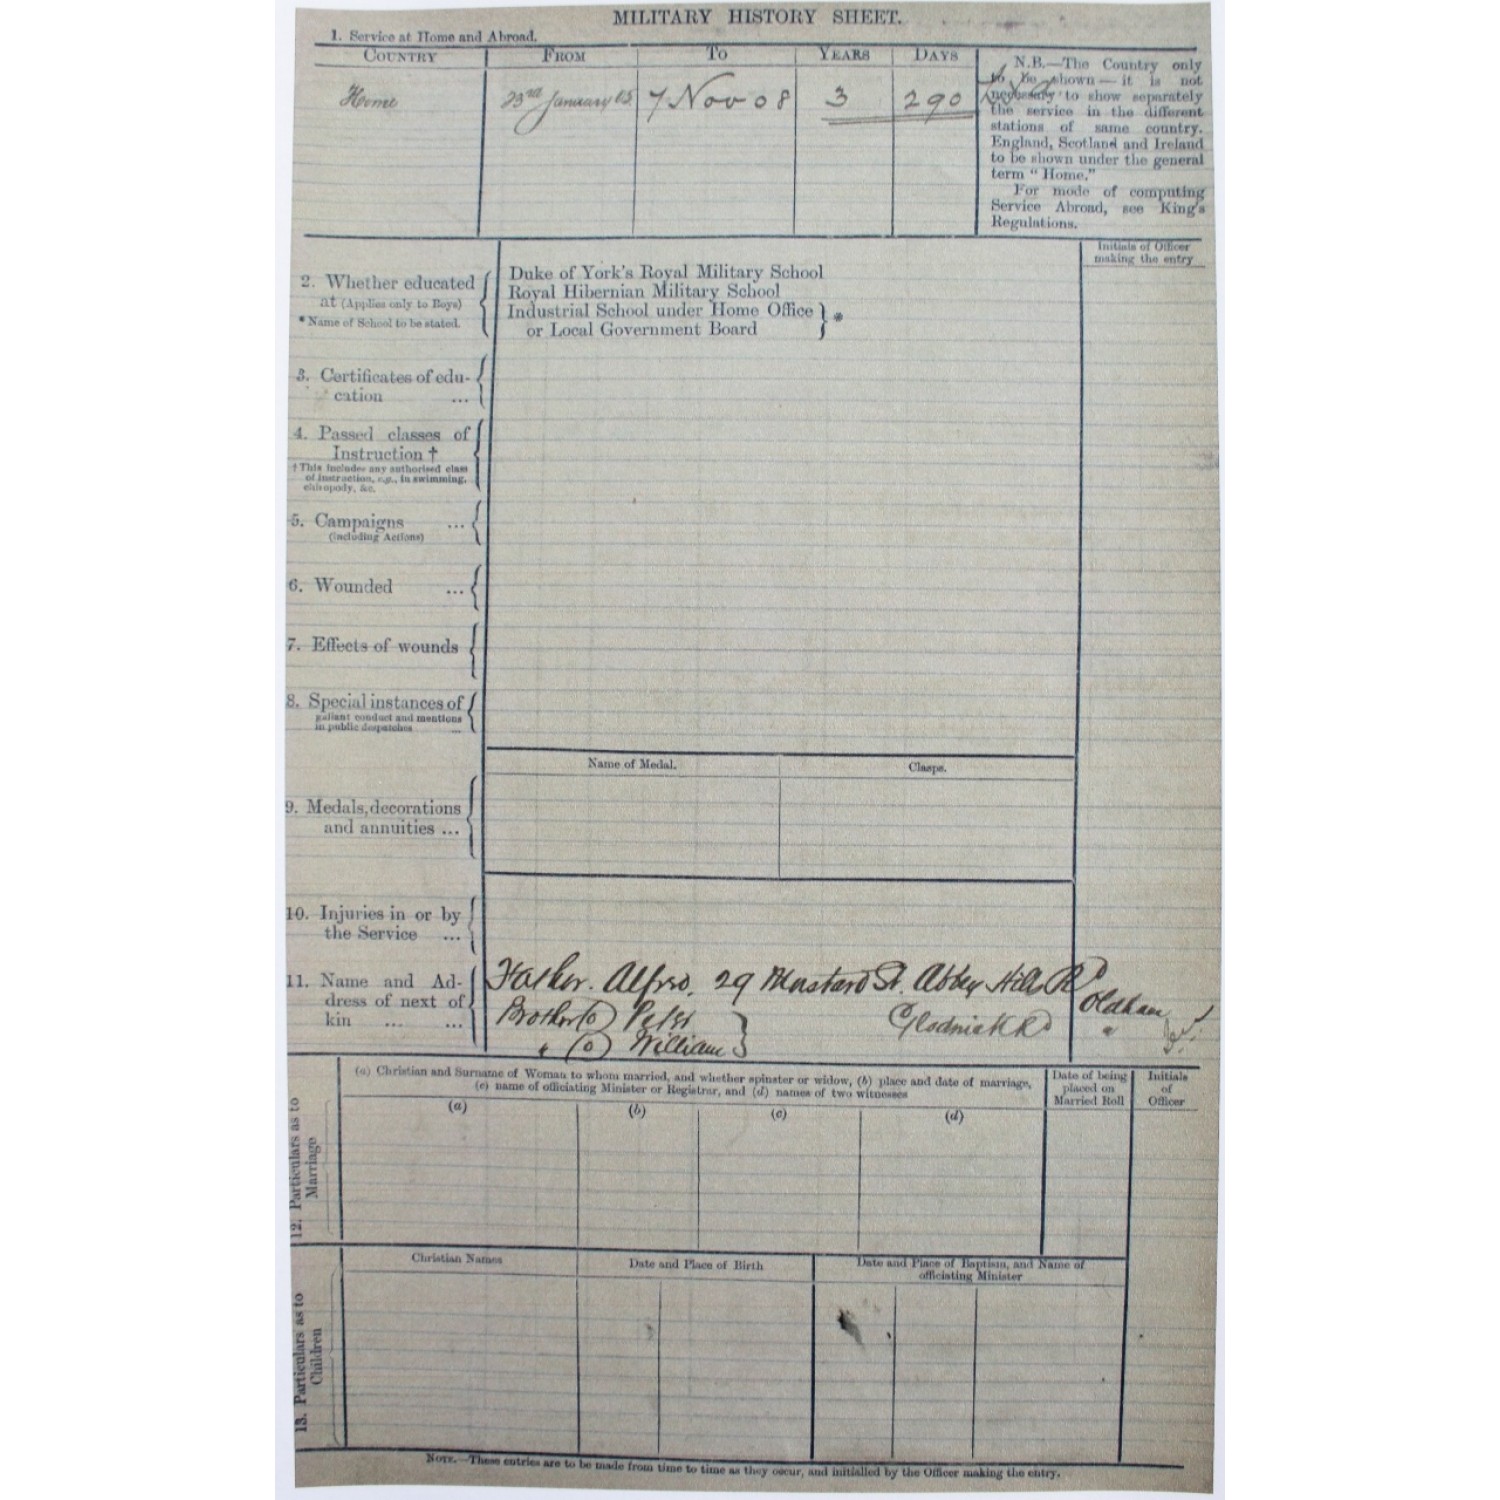 MILITARY HISTORY SHEET.
1. Service at Home and Abroad.
COUNTRY FROM TO YEARS DAYS
Home 23rd January 05 7 Nov 08 3 290
N.B.—The Country only
to be shown — it is not
necessary to show separately
the service in the different
stations of same country.
England, Scotland and Ireland
to be shown under the general
term "Home."
For mode of computing
Service Abroad, see King's
Regulations.
Initials of Officer
making the entry
2. Whether educated
at (Applies only to Boys)
* Name of School to be stated.
Duke of York's Royal Military School
Royal Hibernian Military School
Industrial School under Home Office
or Local Government Board } *
3. Certificates of edu-
cation ...
4. Passed classes of
Instruction †
† This includes any authorised class
of instruction, e.g., in swimming,
chiropody, &c.
5. Campaigns ...
(including Actions)
6. Wounded ...
7. Effects of wounds
8. Special instances of
gallant conduct and mentions
in public despatches ...
Name of Medal. Clasps.
9. Medals, decorations
and annuities ...
10. Injuries in or by
the Service ...
11. Name and Ad-
dress of next of
kin ... ...
Father. Alfred, 29 Mustard St. Abbey Hills Rd Oldham
Brother (o) Peter } Glodwick Rd "
" (o) William
12. Particulars as to
Marriage
(a) Christian and Surname of Woman to whom married, and whether spinster or widow, (b) place and date of marriage,
(c) name of officiating Minister or Registrar, and (d) names of two witnesses
Date of being
placed on
Married Roll
Initials
of
Officer
(a) (b) (c) (d)
13. Particulars as to
Children
Christian Names Date and Place of Birth
Date and Place of Baptism, and Name of
officiating Minister
NOTE.—These entries are to be made from time to time as they occur, and initialled by the Officer making the entry.